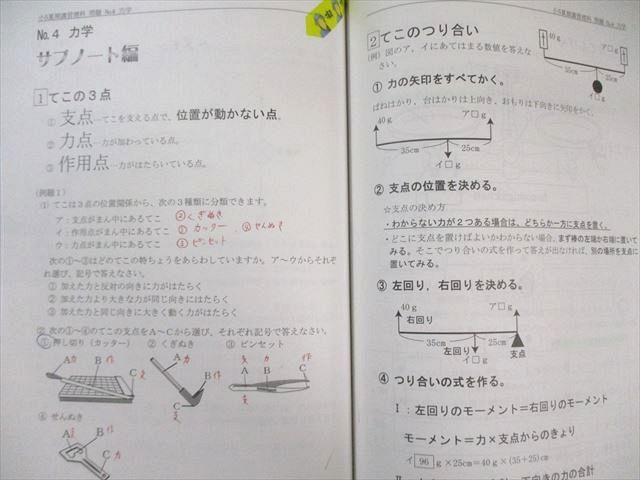 小5夏期講習理科 問題 No.4 力学
No.4 力学
サブノート編
1 てこの3点
① 支点…てこを支える点で、位置が動かない点。
② 力点…力が加わっている点。
③ 作用点…力がはたらいている点。
(例題1)
(1) てこは3点の位置関係から、次の3種類に分類できます。
ア:支点がまん中にあるてこ ②くぎぬき
イ:作用点がまん中にあるてこ ①カッター、④せんぬき
ウ:力点がまん中にあるてこ ③ピンセット
次の①~③はどのてこの特ちょうをあらわしていますか。ア~ウからそれぞれ選び、記号で答えなさい。
① 加えた力と反対の向きに力がはたらく
② 加えた力より大きな力が同じ向きにはたらく
③ 加えた力と同じ向きに大きく動く力がはたらく
(2) 次の①~④のてこの支点をA~Cから選び、それぞれ記号で答えなさい。
① 押し切り(カッター) ② くぎぬき ③ ピンセット
A力 B作 C支
A力 B作 C支
A支 B力 C作
④ せんぬき
A支 B作 C力
小5夏期講習理科 問題 No.4 力学
2 てこのつり合い
(例) 図のア、イにあてはまる数値を答えなさい。
40g ア□g
35cm 25cm
イ□g
① 力の矢印をすべてかく。
ばねはかり、台はかりは上向き、おもりは下向きに矢印をかく。
40g ア□g
35cm 25cm
イ□g
② 支点の位置を決める。
☆支点の決め方
・わからない力が2つある場合は、どちらか一方に支点を置く。
・どこに支点を置けばよいかわからない場合、まず棒の左端か右端に置いて
みる。そこでつり合いの式を作って答えが出なければ、別の場所を支点に
置いてみる。
③ 左回り、右回りを決める。
40g ア□g
右回り
35cm 25cm
左回り イ□g 支点
④ つり合いの式を作る。
Ⅰ:左回りのモーメント=右回りのモーメント
モーメント=力×支点からのきょり
イ 96 g×25cm=40g×(35+25)cm